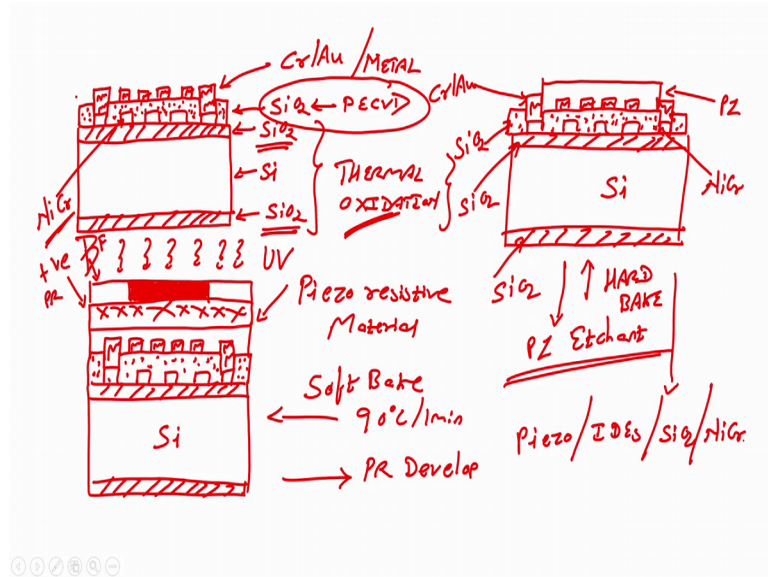 Cr/Au/METAL
SiO2 ← PECVD
SiO2
Si
SiO2
THERMAL
OXIDATION
NiCr
BF
UV
+ve
PR
Piezo resistive
Material
Si
Soft Bake
90°C/1min
PR Develop
Cr/Au
PZ
SiO2
SiO2
Si
NiCr
SiO2
HARD
BAKE
PZ Etchant
Piezo/IDEs/SiO2/NiCr.